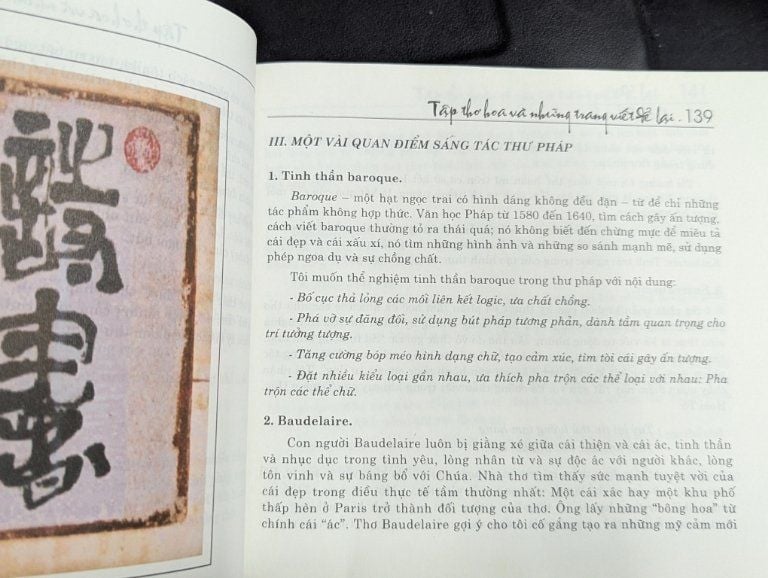 Tập thơ hoa và những trang viết để lại . 139
III. MỘT VÀI QUAN ĐIỂM SÁNG TÁC THƯ PHÁP
1. Tinh thần baroque.
Baroque – một hạt ngọc trai có hình dáng không đều đặn – từ để chỉ những
tác phẩm không hợp thức. Văn học Pháp từ 1580 đến 1640, tìm cách gây ấn tượng,
cách viết baroque thường tỏ ra thái quá; nó không biết đến chừng mực để miêu tả
cái đẹp và cái xấu xí, nó tìm những hình ảnh và những so sánh mạnh mẽ, sử dụng
phép ngoa dụ và sự chồng chất.
Tôi muốn thể nghiệm tinh thần baroque trong thư pháp với nội dung:
- Bố cục thả lỏng các mối liên kết logic, ưa chất chồng.
- Phá vỡ sự đăng đối, sử dụng bút pháp tương phản, dành tầm quan trọng cho
trí tưởng tượng.
- Tăng cường bóp méo hình dạng chữ, tạo cảm xúc, tìm tòi cái gây ấn tượng.
- Đặt nhiều kiểu loại gần nhau, ưa thích pha trộn các thể loại với nhau: Pha
trộn các thể chữ.
2. Baudelaire.
Con người Baudelaire luôn bị giằng xé giữa cái thiện và cái ác, tinh thần
và nhục dục trong tình yêu, lòng nhân từ và sự độc ác với người khác, lòng
tôn vinh và sự báng bổ với Chúa. Nhà thơ tìm thấy sức mạnh tuyệt vời của
cái đẹp trong điều thực tế tầm thường nhất: Một cái xác hay một khu phố
thấp hèn ở Paris trở thành đối tượng của thơ. Ông lấy những “bông hoa” từ
chính cái “ác”. Thơ Baudelaire gợi ý cho tôi cố gắng tạo ra những mỹ cảm mới